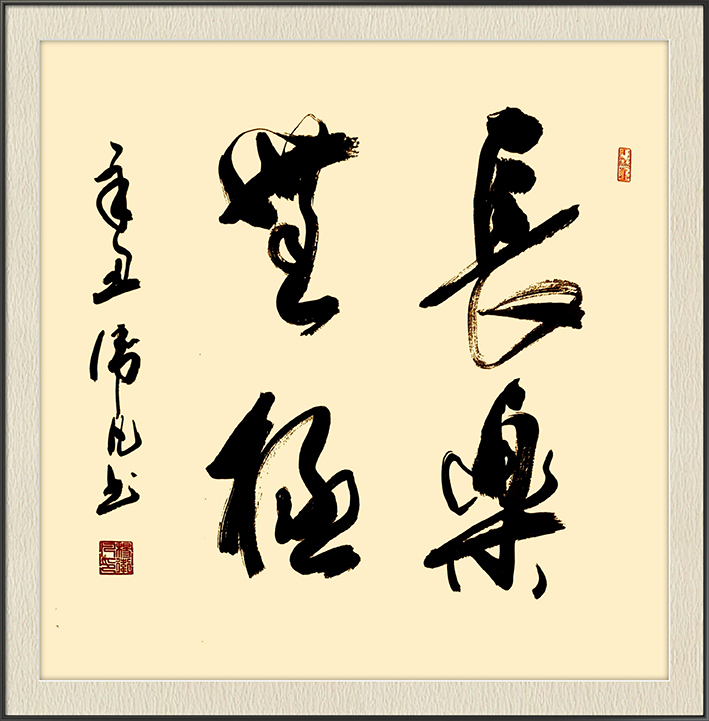 長樂
無極
辛丑 偉凡书